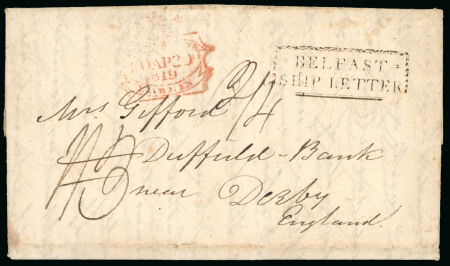 AP20
1819
BELFAST
SHIP LETTER
2/4
Mrs Gifford
Duffield-Bank
near Derby
England